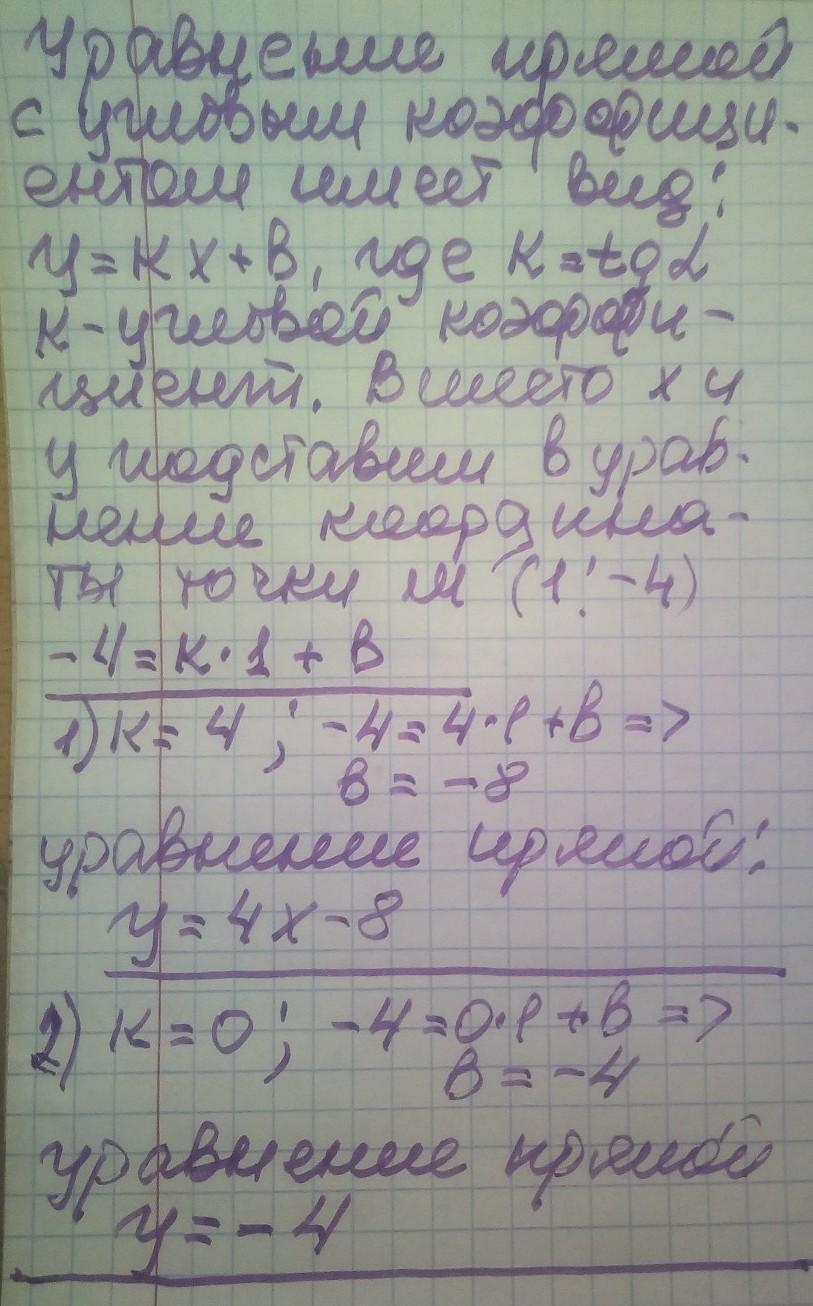 Уравнение прямой
с угловым коэффици-
ентом имеет вид:
у=кх+в, где к=tgα
к-угловой коэффи-
циент. Вместо х и
у подставим в урав-
нение координа-
ты точки М (1;-4)
-4=к·1+в
1) к=4; -4=4·1+в=>
в=-8
уравнение прямой:
у=4х-8
2) к=0; -4=0·1+в=>
в=-4
уравнение прямой
у=-4